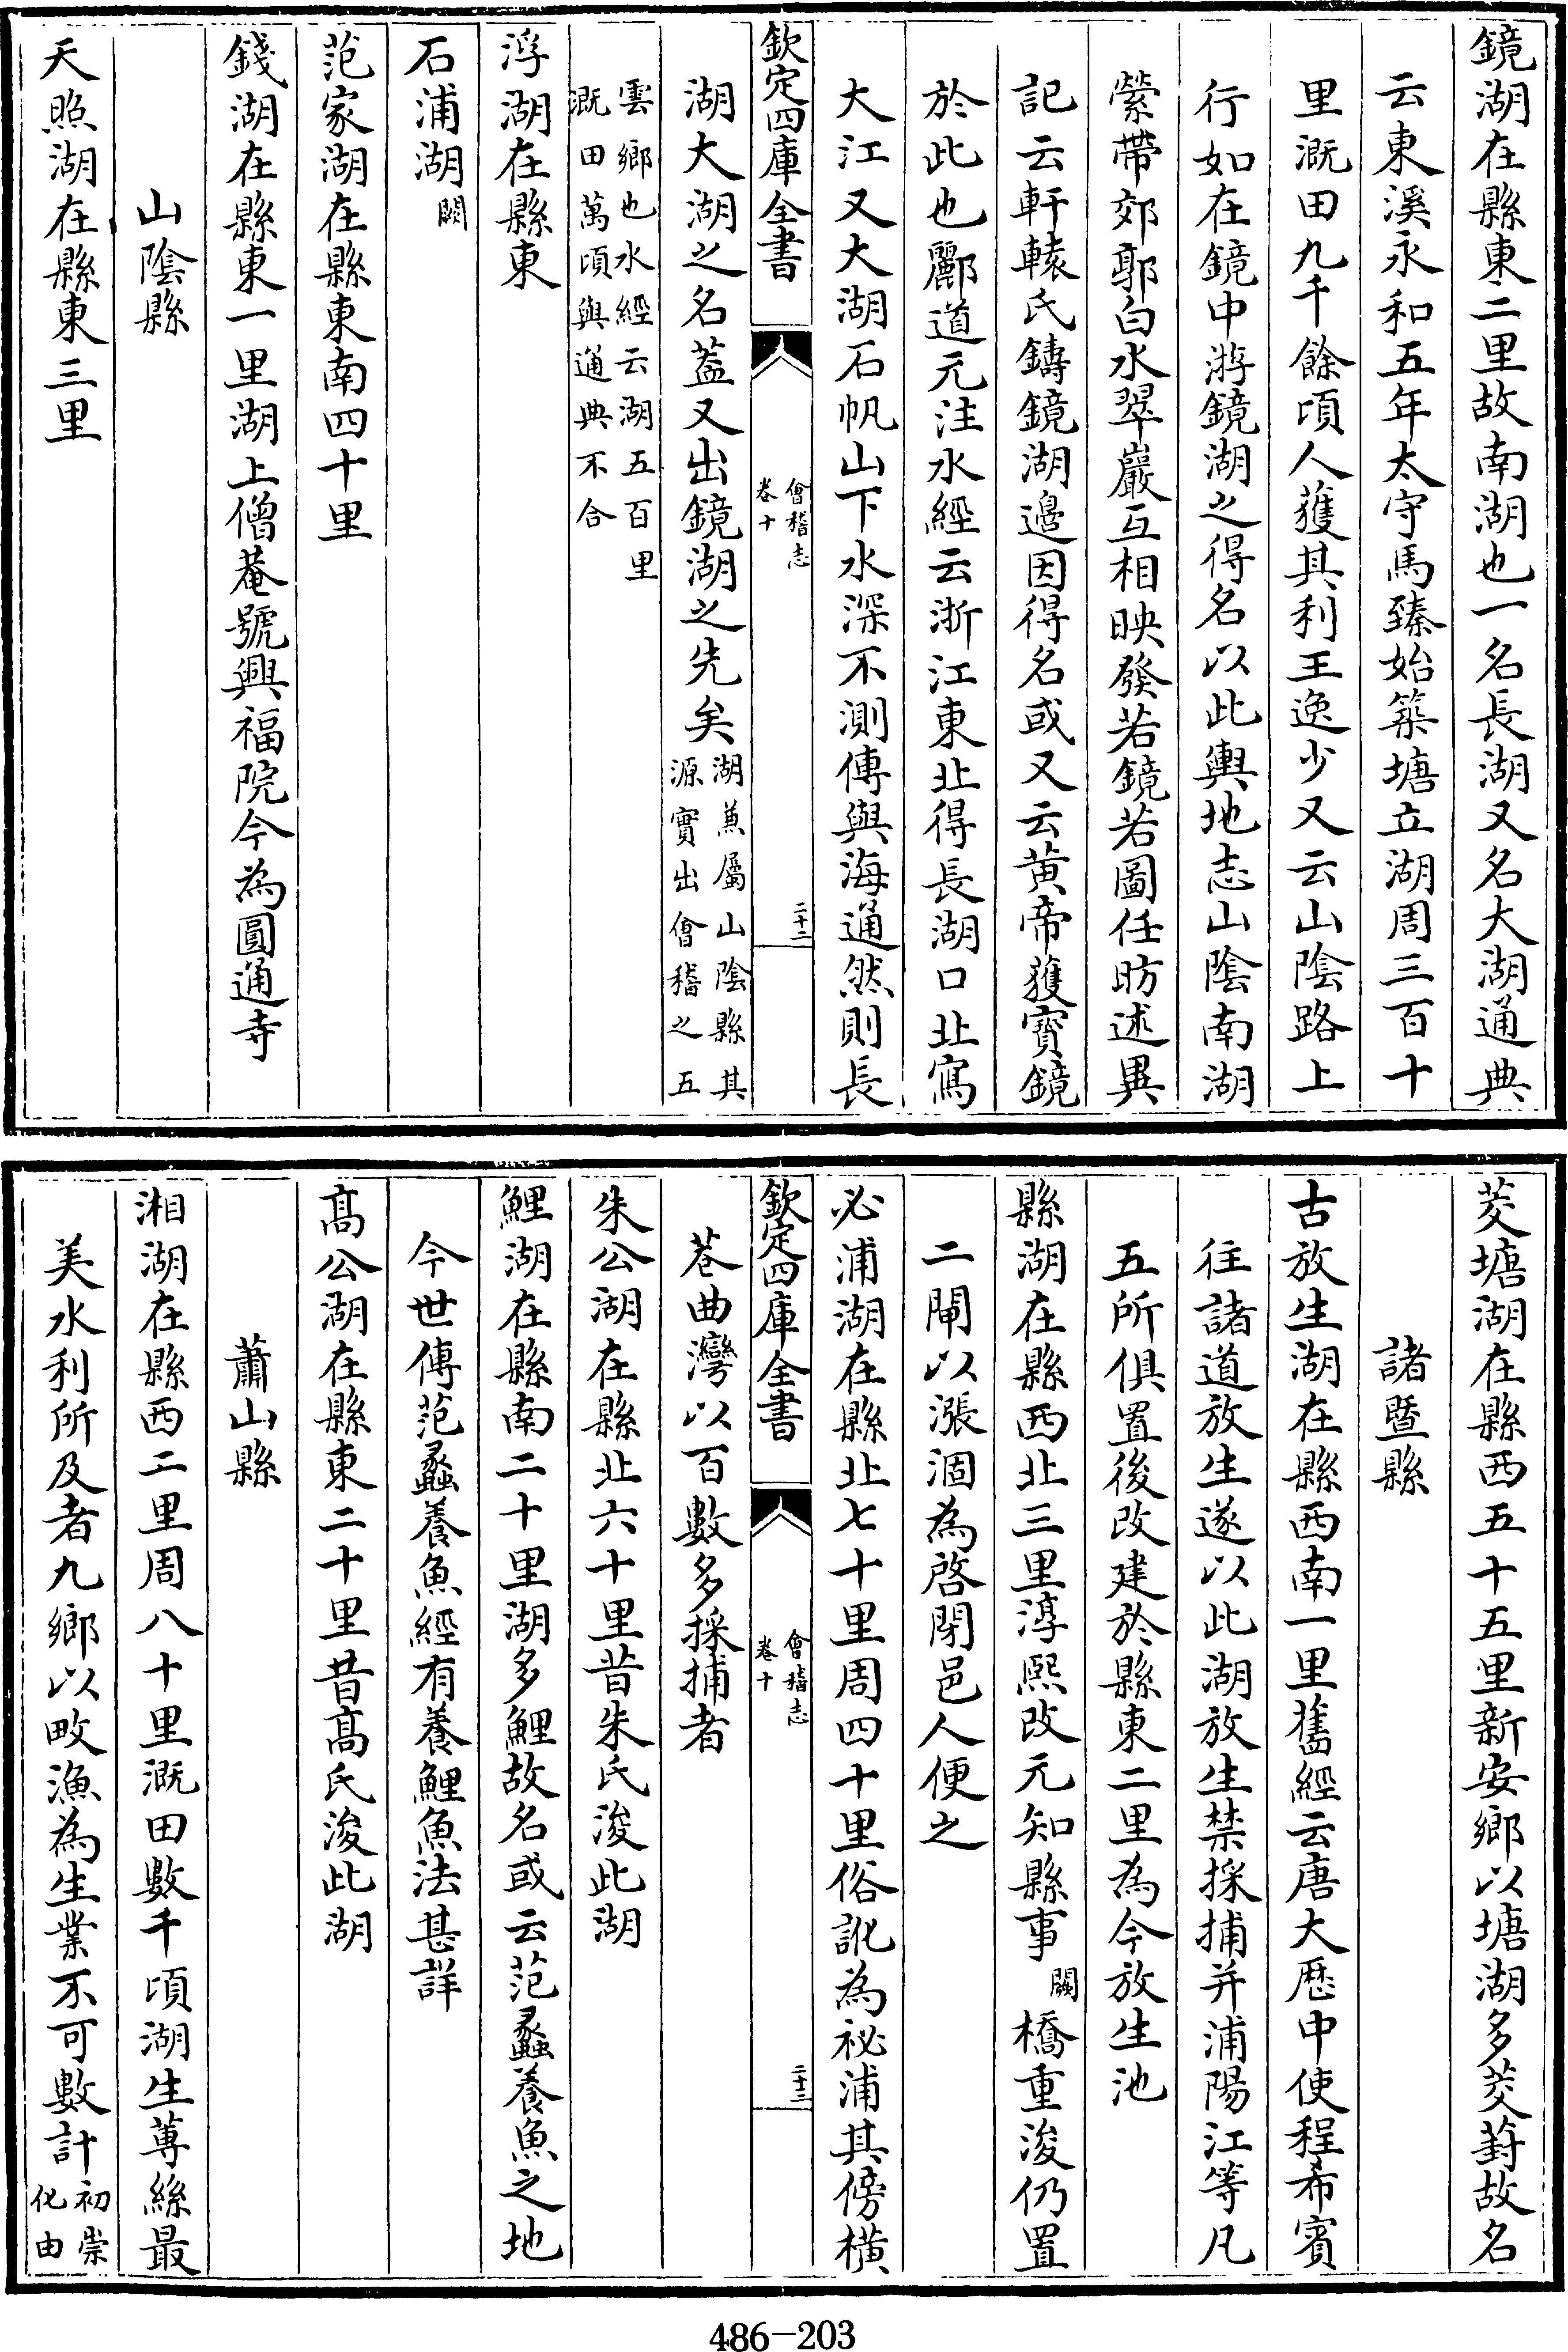 鏡湖在縣東二里故南湖也一名長湖又名大湖通典
云東溪永和五年太守馬臻始築塘立湖周三百十
里溉田九千餘頃人獲其利王逸少又云山隂路上
行如在鏡中游鏡湖之得名以此輿地志山隂南湖
縈帶郊郭白水翠巖互相映發若鏡若圖任昉述異
記云軒轅氏鑄鏡湖邉因得名或又云黄帝獲寳鏡
於此也酈道元注水經云浙江東北得長湖口北寫
大江又大湖石帆山下水深不測傳與海通然則長
欽定四庫全書
會稽志
卷十
二十二
湖大湖之名葢又出鏡湖之先矣湖兼屬山隂縣其
源實出會稽之五
雲鄉也水經云湖五百里
溉田萬頃與通典不合
浮湖在縣東
石浦湖闕
范家湖在縣東南四十里
錢湖在縣東一里湖上僧菴號興福院今為圓通寺
山隂縣
天照湖在縣東三里
茭塘湖在縣西五十五里新安鄉以塘湖多茭葑故名
諸暨縣
古放生湖在縣西南一里舊經云唐大厯中使程希賓
往諸道放生遂以此湖放生禁採捕并浦陽江等凡
五所俱置後改建於縣東二里為今放生池
縣湖在縣西北三里淳熙改元知縣事闕橋重浚仍置
二閘以漲涸為啓閉邑人便之
必浦湖在縣北七十里周四十里俗訛為祕浦其傍横
欽定四庫全書
會稽志
卷十
二十三
巷曲灣以百數多採捕者
朱公湖在縣北六十里昔朱氏浚此湖
鯉湖在縣南二十里湖多鯉故名或云范蠡養魚之地
今世傳范蠡養魚經有養鯉魚法甚詳
髙公湖在縣東二十里昔髙氏浚此湖
蕭山縣
湘湖在縣西二里周八十里溉田數千頃湖生蓴絲最
美水利所及者九鄉以畋漁為生業不可數計初崇
化由
486-203